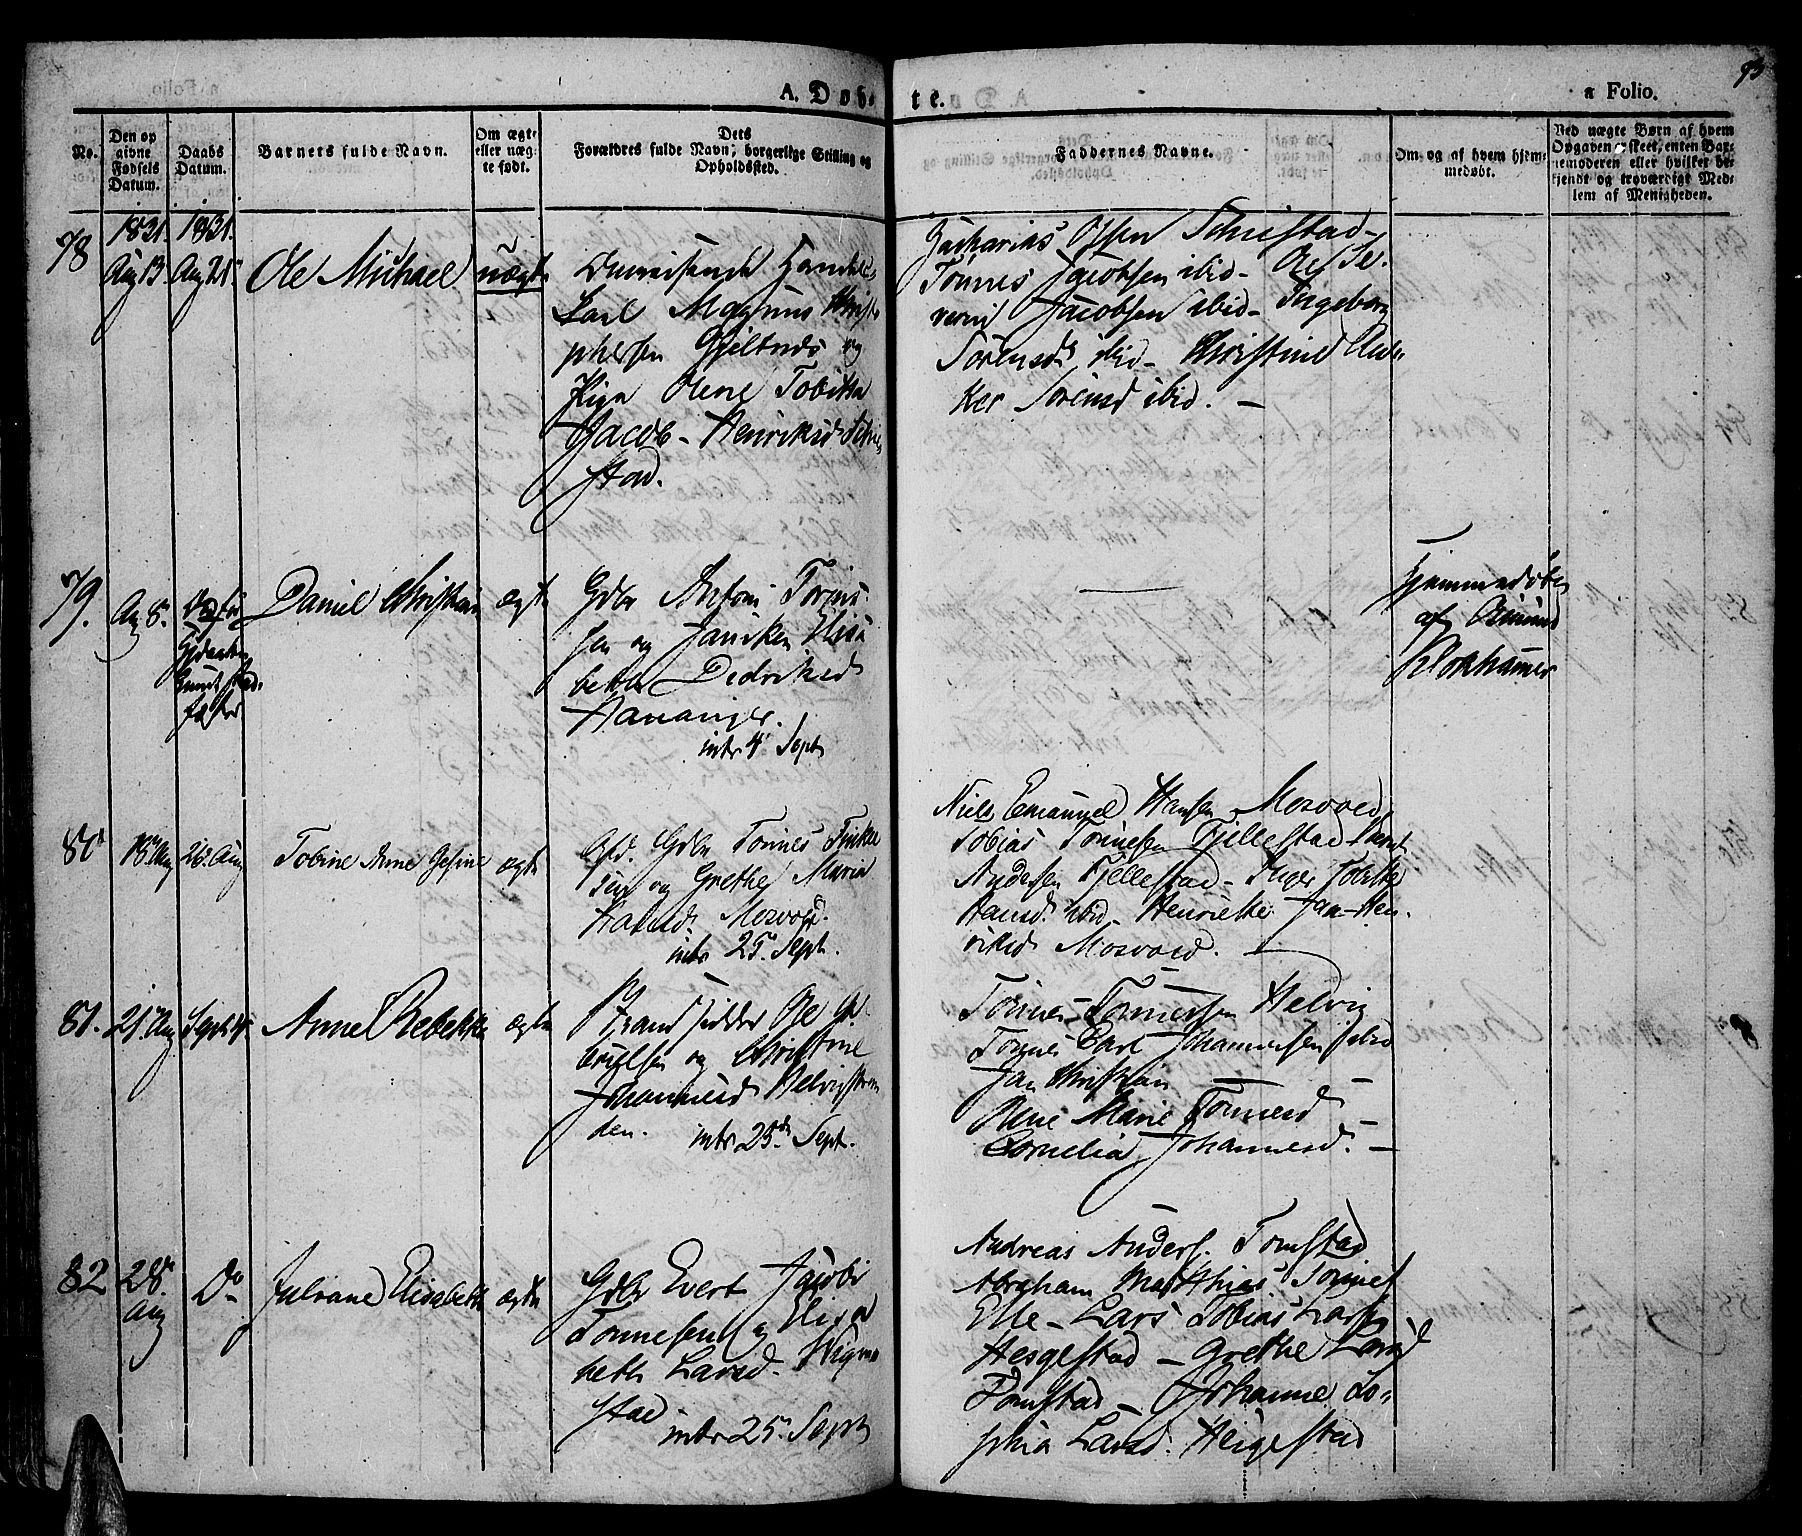 A. Døb-
te.
a Folio.
93
No.
Den op
givne
Fødsels
Datum.
Daabs
Datum.
Barnets fulde Navn.
Om ægte
eller uæg-
te født.
Dets
Forældres fulde Navn, borgerlige Stilling og
Opholdssted.
Faddernes Navne.
Om og af hvem hjem-
medøbt.
Ved uægte Børn af hvem
Opgaven er skeet, enten Bar-
nemoderen eller hvilket be-
kjendt og troværdigt Med-
lem af Menigheden.
78
1831.
Aug 13
1831.
Aug 21
Ole Michael
uægte
Carl Magnus Christo
phersen Gjeltnes og
Pige Olene Tobitha
Jacob-Henriksd
stad.
Zacharias Olsen
Tønnes Jacobsen ibid- Ole Se-
verin Jacobsen ibid- Ingeborg
Sørensd ibid- Christine An-
ker Sørensd ibid. -
79.
Aug 8.
Daniel Christian
ægte
Gdbr Antoni Tønnes-
sen og Janiken Elisa
beth Didriksd
Hananger.
intr 4 Sept
Hjemmedøbt
af Asmund
Klokhamer
80
18 Aug
26. Aug
Tobine Anne Gesine
ægte
Gdbr Tønnes
sen og Grethe Maria
Hansd. Mosvold.
intr 25 Sept.
Niels Emanuel Hansen Mosvold
Tobias Tønnesen Fjellestad
Andersen Fjellestad- Inger Tobithe
Hansd ibid- Henriette Jan-Hen-
riksd Mosvold. -
81.
21 Aug
Sept 4.
Anne Rebekke
ægte
Strandsidder Ole Ga-
brielsen og Christine
Johannesd Helvigstran
den.
intr 25de Sept.
Tønnes Tønnessen Helvig
Tønnes Carl Johannessen ibid
Jan Christian
Anne Marie Tønnesd -
Cornelia Johannesd. -
82
28.
Aug
Do
Juliane Elisabeth
ægte
Gdbr Evert Jacobi
Tønnesen og Elisa
beth Larsd. Vigme
stad
intr 25 Sept
Andreas Anders. Tomstad
Abraham Matthias Tønnes.
Elle- Lars Tobias Lars.
Hesgestad - Grethe Larsd
Tomstad - Johanne So-
phia Larsd. Heigestad